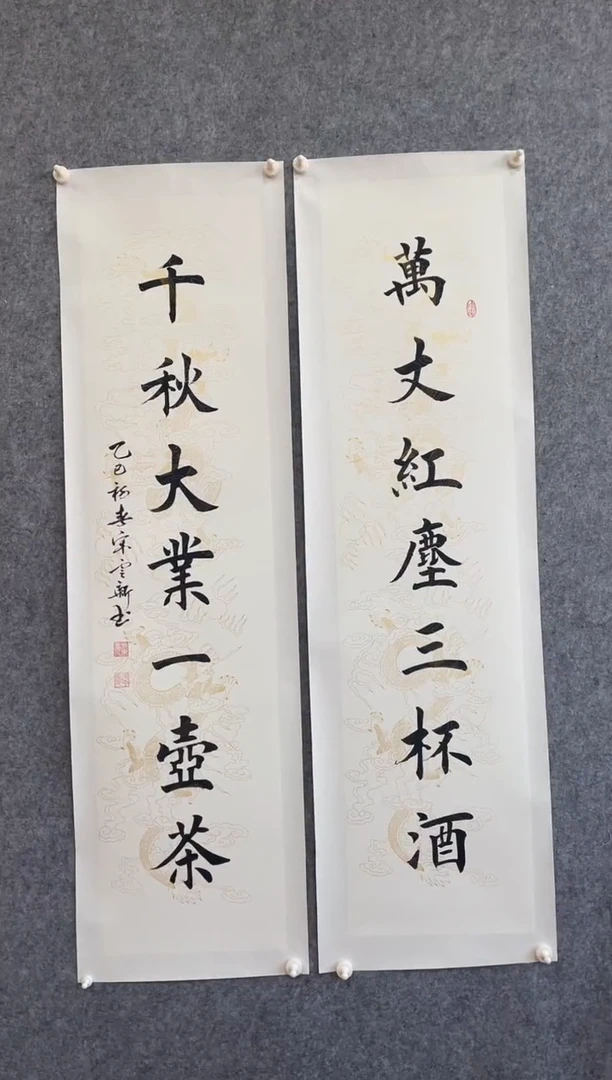 萬丈紅塵三杯酒
千秋大業一壺茶
乙巳初春宋雲新書